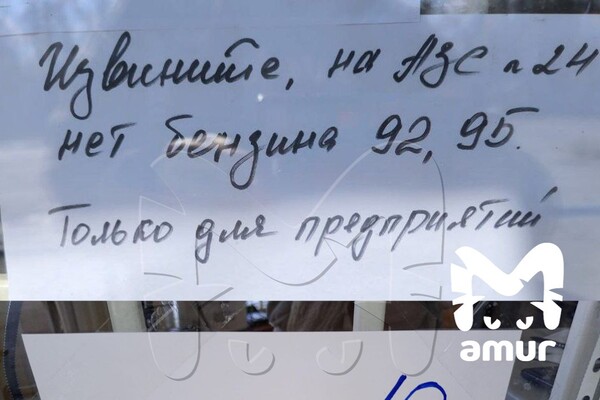 Извините, на АЗС №24
нет бензина 92, 95.
Только для предприятий
amur